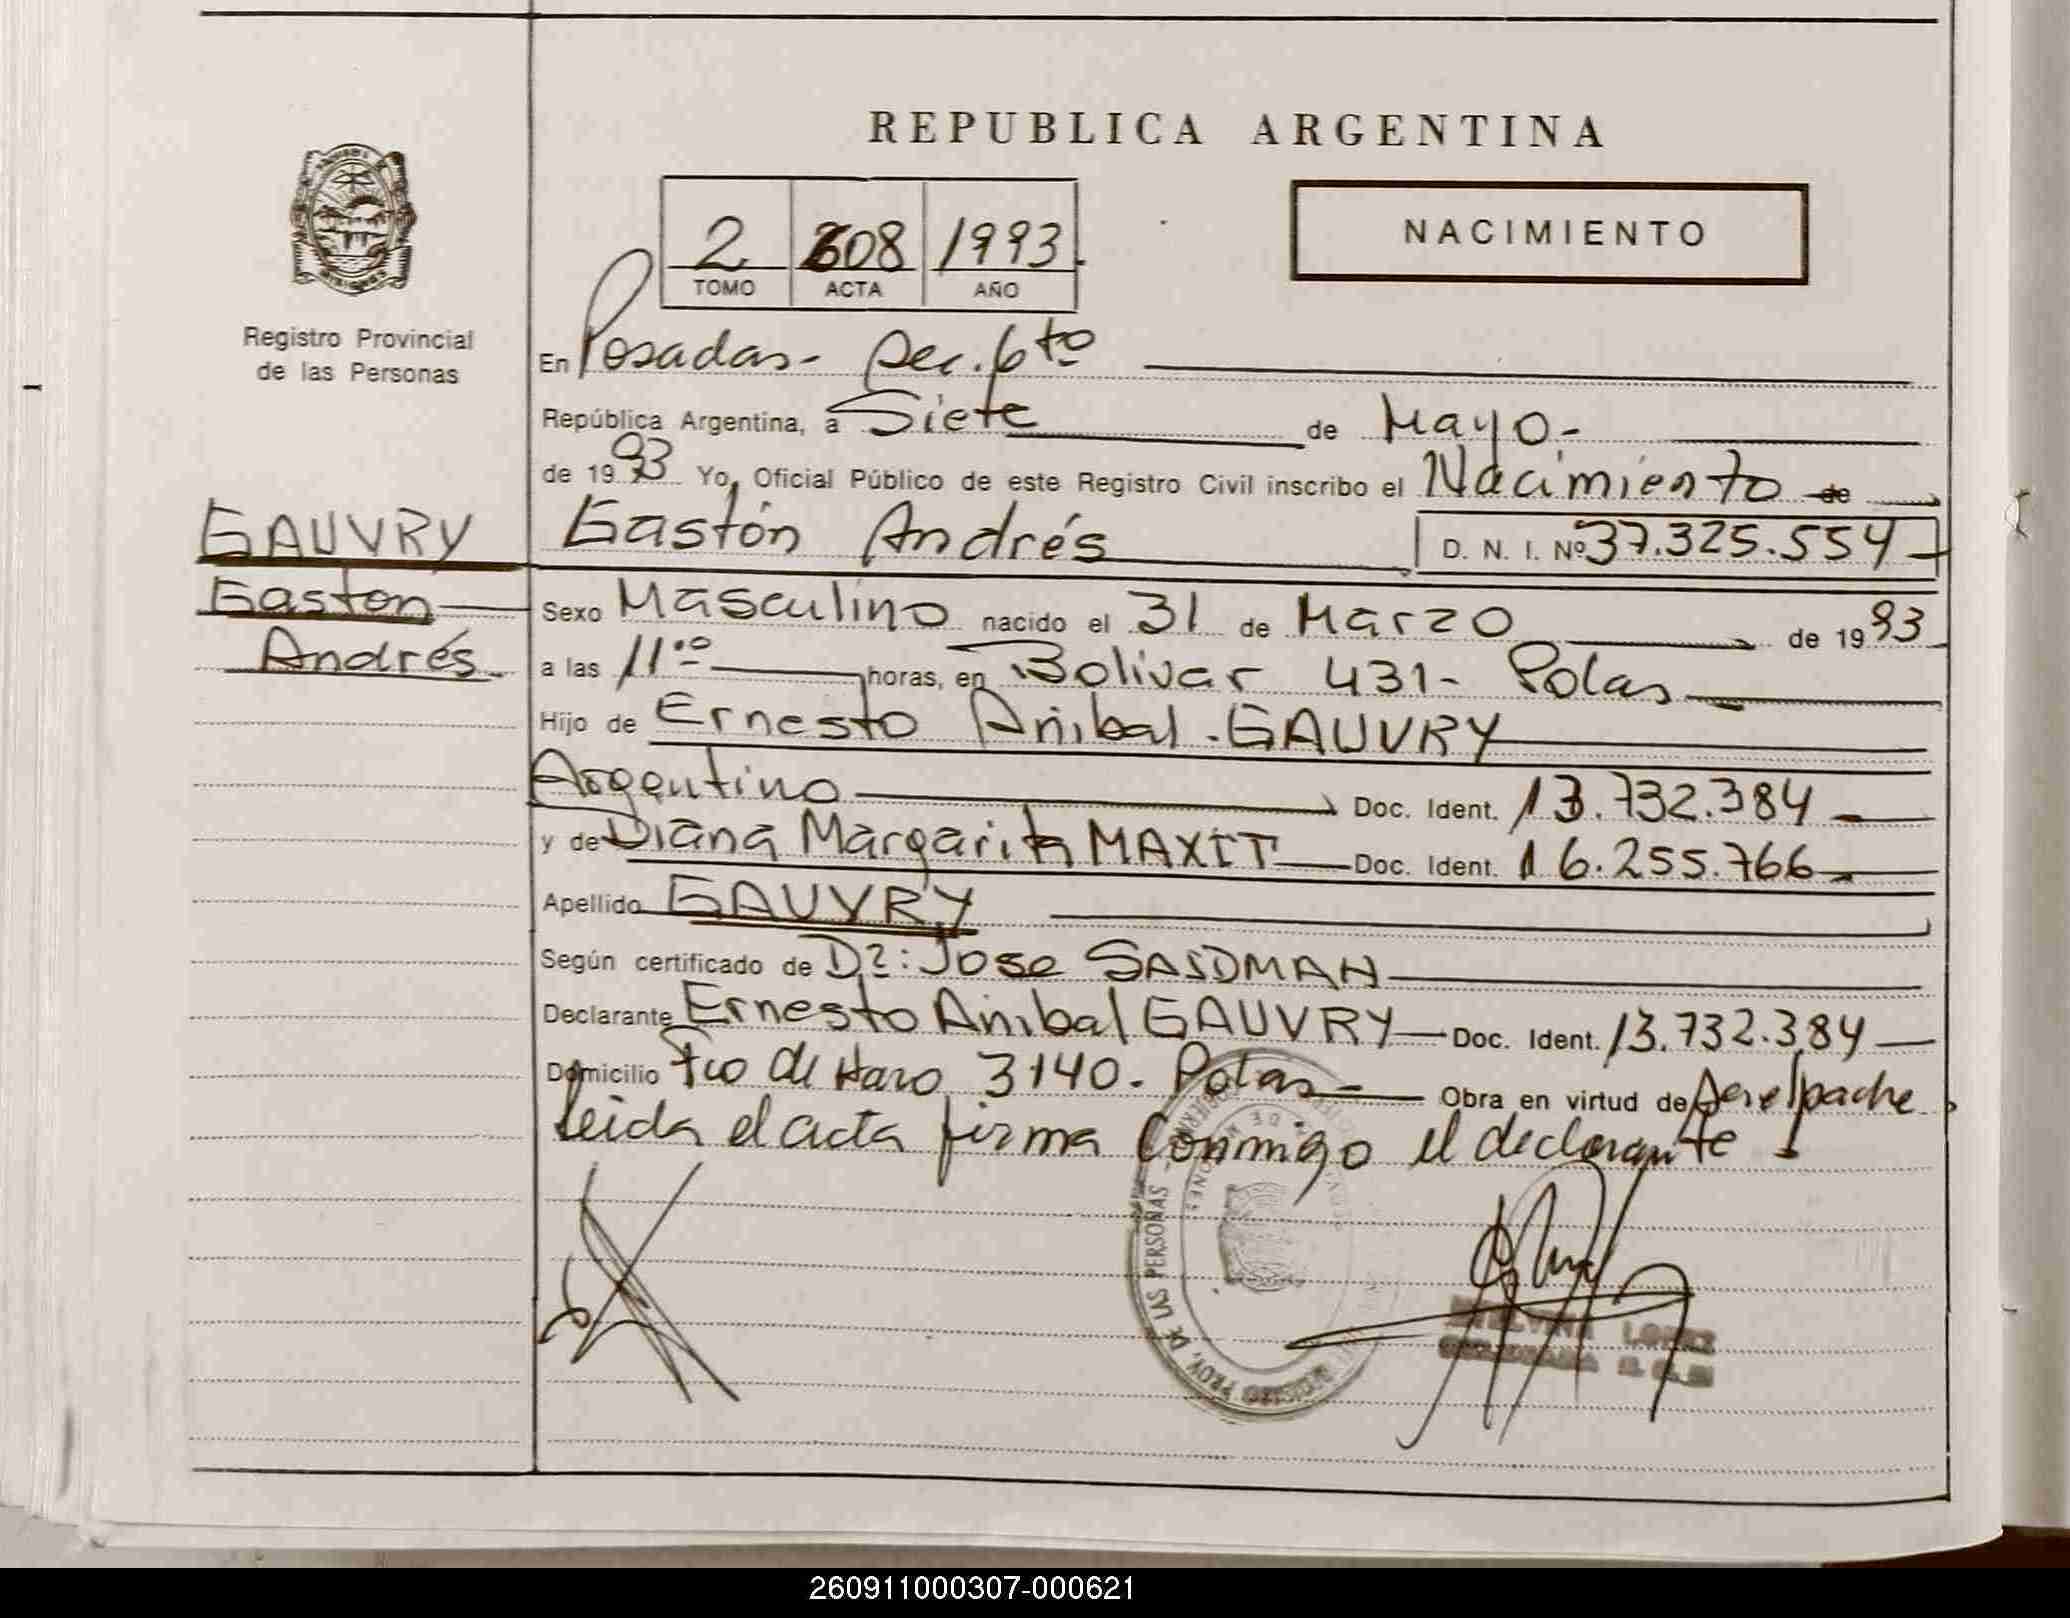 REPUBLICA ARGENTINA
NACIMIENTO
2 608 1993
TOMO ACTA AÑO
Registro Provincial
de las Personas
En Posadas - Sec. 6to
República Argentina, a Siete de Mayo -
de 1993 Yo, Oficial Público de este Registro Civil inscribo el Nacimiento de
GAUVRY
Gastón
Andrés
Gastón Andrés D. N. I. Nº 37.325.554
Sexo Masculino nacido el 31 de Marzo de 1993
a las 11.00 horas, en Bolivar 431 - Pdas
Hijo de Ernesto Aníbal - GAUVRY
Argentino Doc. Ident. 13.732.384
y de Diana Margarita MAXIT Doc. Ident. 16.255.766
Apellido GAUVRY
Según certificado de Dr: Jose SASDMAN
Declarante Ernesto Aníbal GAUVRY Doc. Ident. 13.732.384
Domicilio Fco de Haro 3140 - Pdas - Obra en virtud de
leida el acta firma Conmigo el declarante
REGISTRO PROV. DE LAS PERSONAS
LOPEZ
260911000307-000621